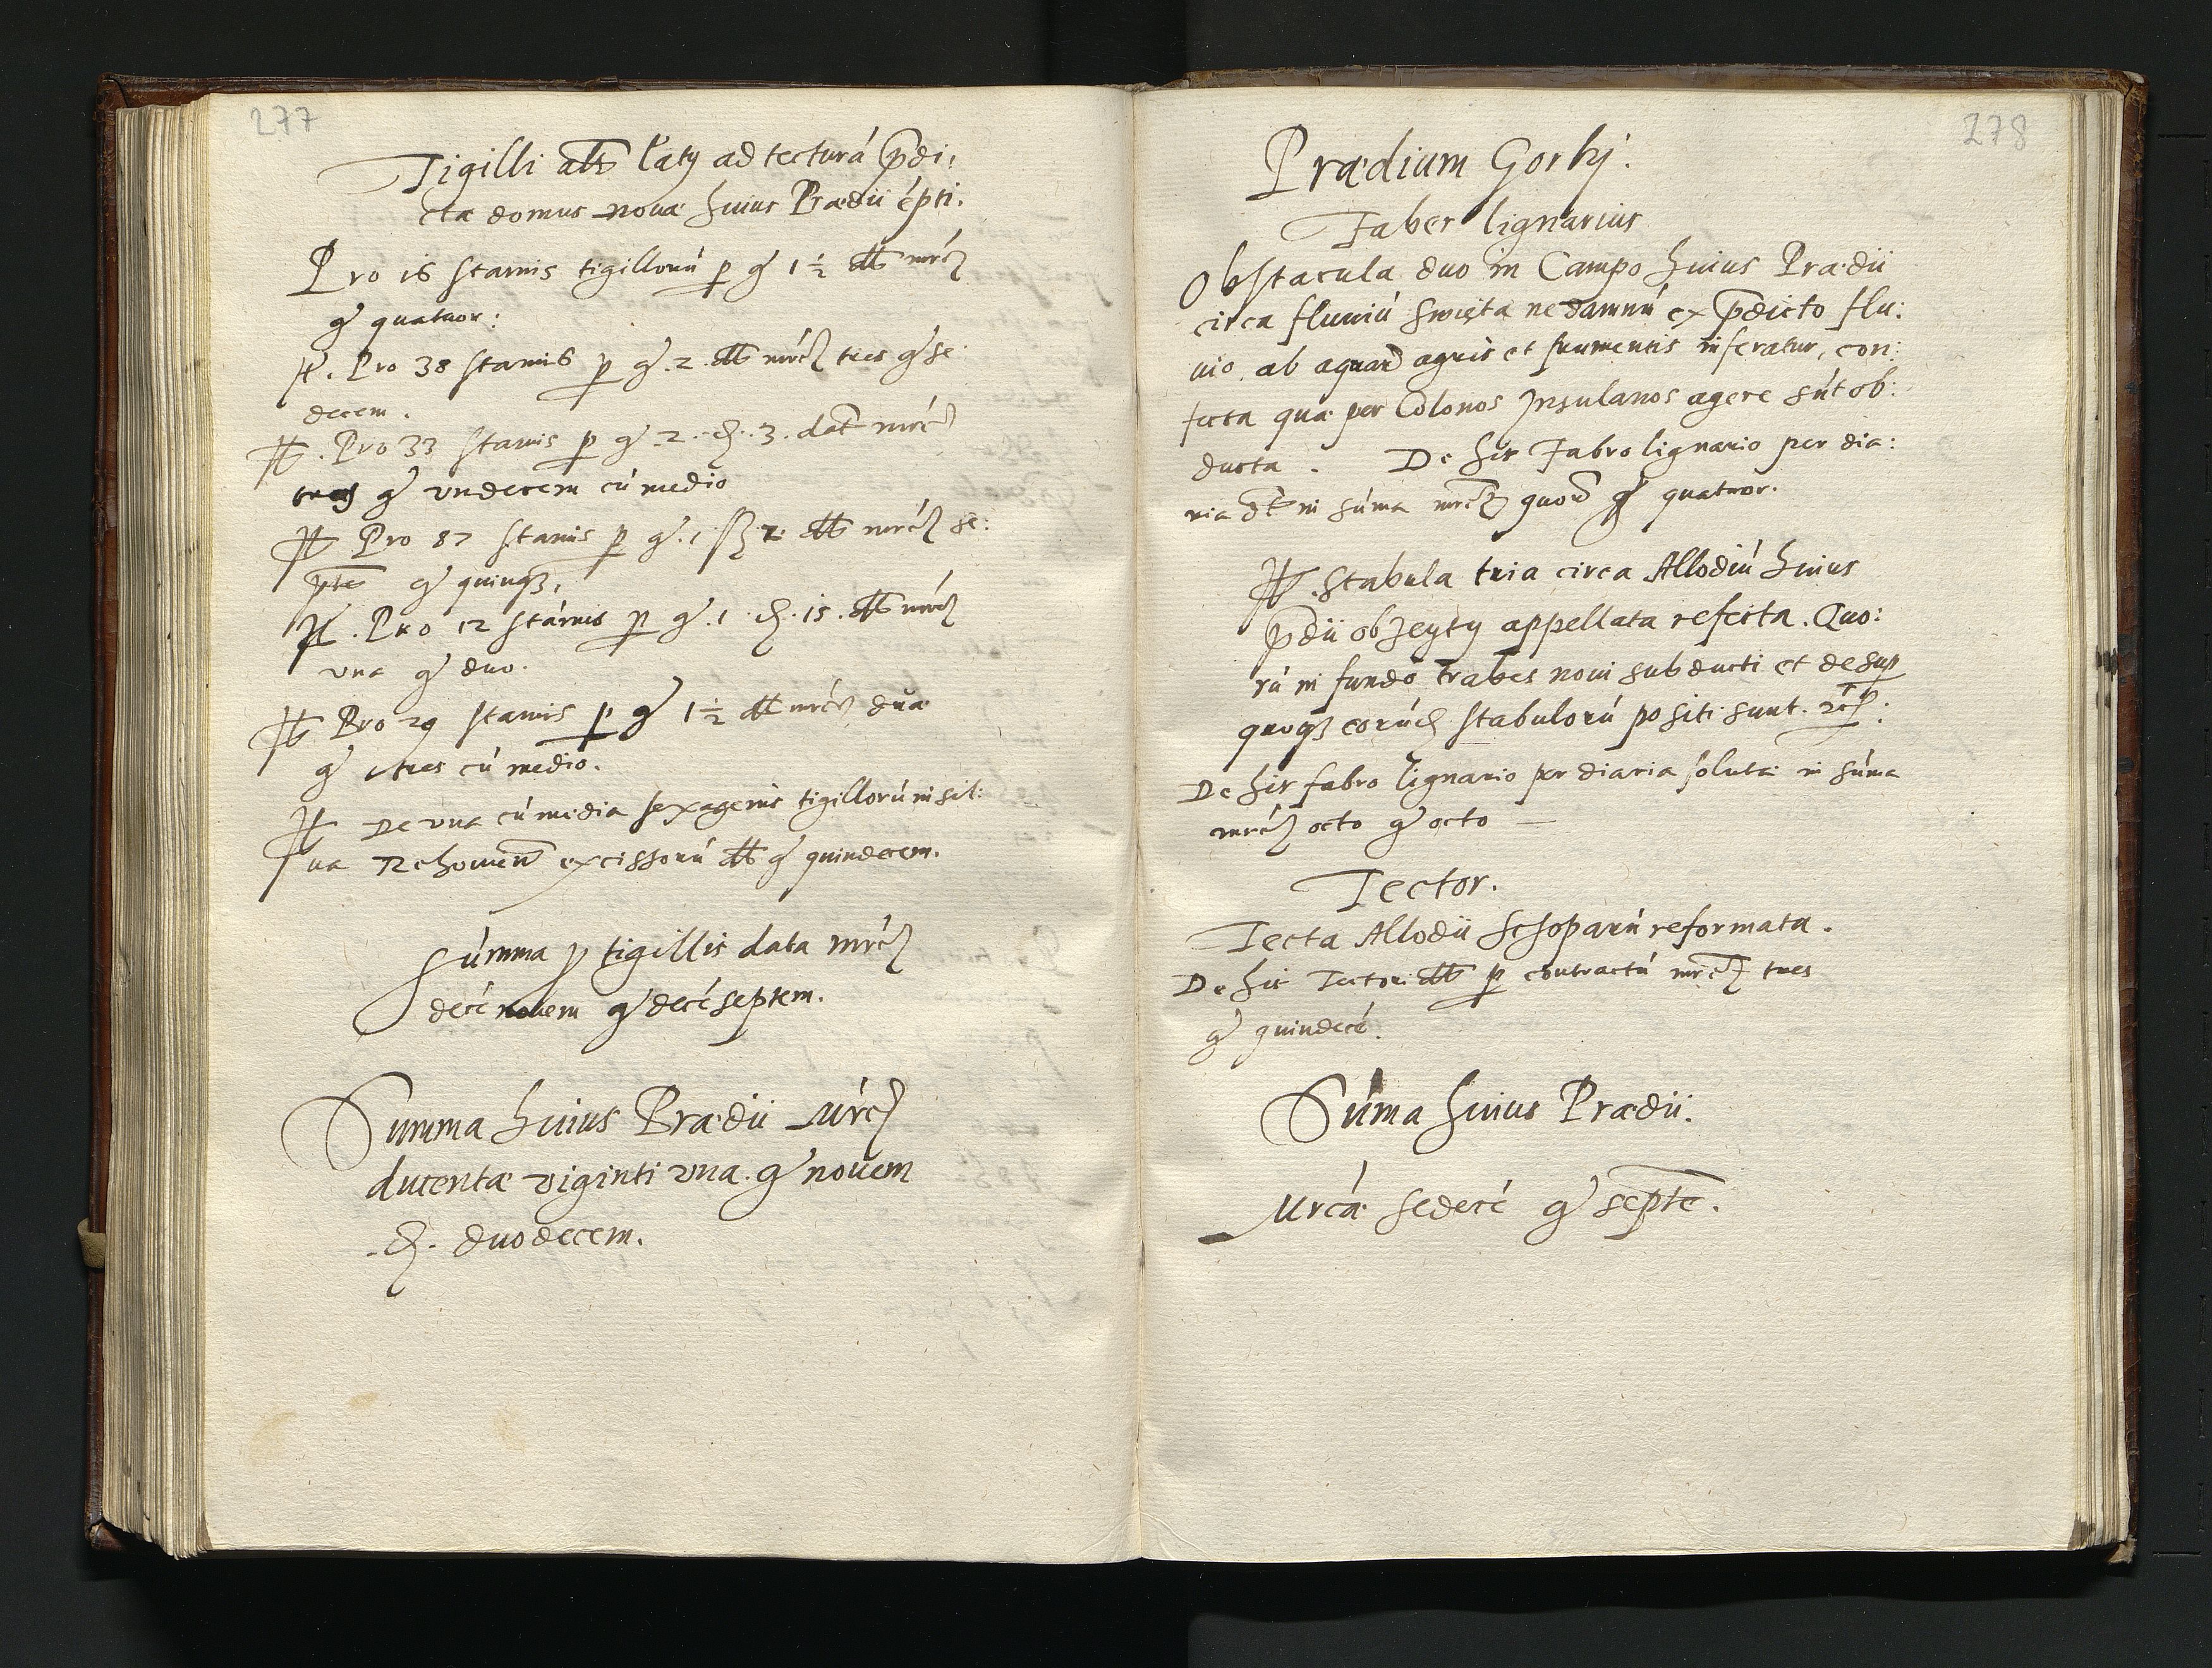 277
Tigilli als Laty ad tecturá p̄di:
ctæ domus nouæ huius Prædii épti.
Pro 16 stamis tigillorú p gͬ 1½ dtt mrć
gͬ quatuor:
It. Pro 38 stamis p gͬ .2. dtt mrć tres gͬ se
decem.
It. Pro 33 stamis p gͬ .2. ₰. 3. dat mrć
tres gͬ vndecem cú medio
It Pro 87 stamis p gͬ .1 dtt mrć se:
pte gͬ quinqꝫ,
It. Pro 12 stámis p gͬ .1. ₰. 15. dtt mrć
vna gͬ duo.
It Pro 29 stamis p gͬ 1½ dtt mrć duæ
gͬ tres cú medio.
It De vna cú media sexagenis tigillorú in sil:
ua excissorú dtt gͬ quindecem.
Súmma p tigillis data mrć
decé nouem gͬ decé septem.
Summa huius Prædii Mrć
ducentæ viginti vna. gͬ nouem
.₰. duodecem.
278
Prædium Gorky.
Faber lignarius
Obstacula duo in Campo huius Prædii
circa fluuiú Swięta ne damnú ex p̄dicto flu:
uio ab aquarͫ agris et frumentis inferatur, con:
fecta quæ per Colonos Insulanos agere sút ob:
ducta. De his Fabro lignario per dia:
ria in súma mrć gͬ quatuor.
It. Stabula tria circa Allodiú huius
p̄dii obzeyty appellata refecta. Quo:
rú in fundo trabes noui subducti et desup
quoqꝫ eorúd stabulorú positi sunt.
De his fabro lignario per diaria soluta in súma
mrć octo gͬ octo —
Tector.
Tecta Allodii Schoparú reformata.
De his Tectori dtt p contractú mrć tres
gͬ quindecé.
Súma huius Prædii.
Mrcá sedecé gͬ septe.